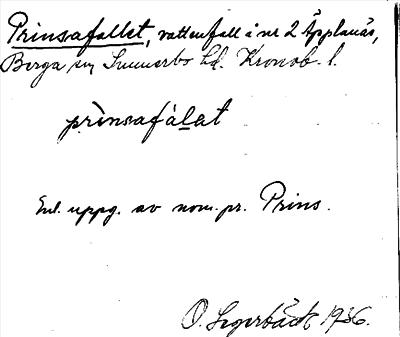 Prinsafallet, vattenfall i nr 2 Äpplanäs,
Berga sn Sunnerbo hd. Kronob. l.
prìnsafálat
Enl. uppg. av nom. pr. Prins.
O. Segerbäck 1936.